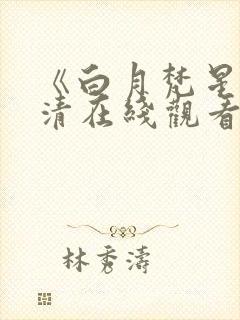 《白月梵星
清在綫觀看
林秀濤